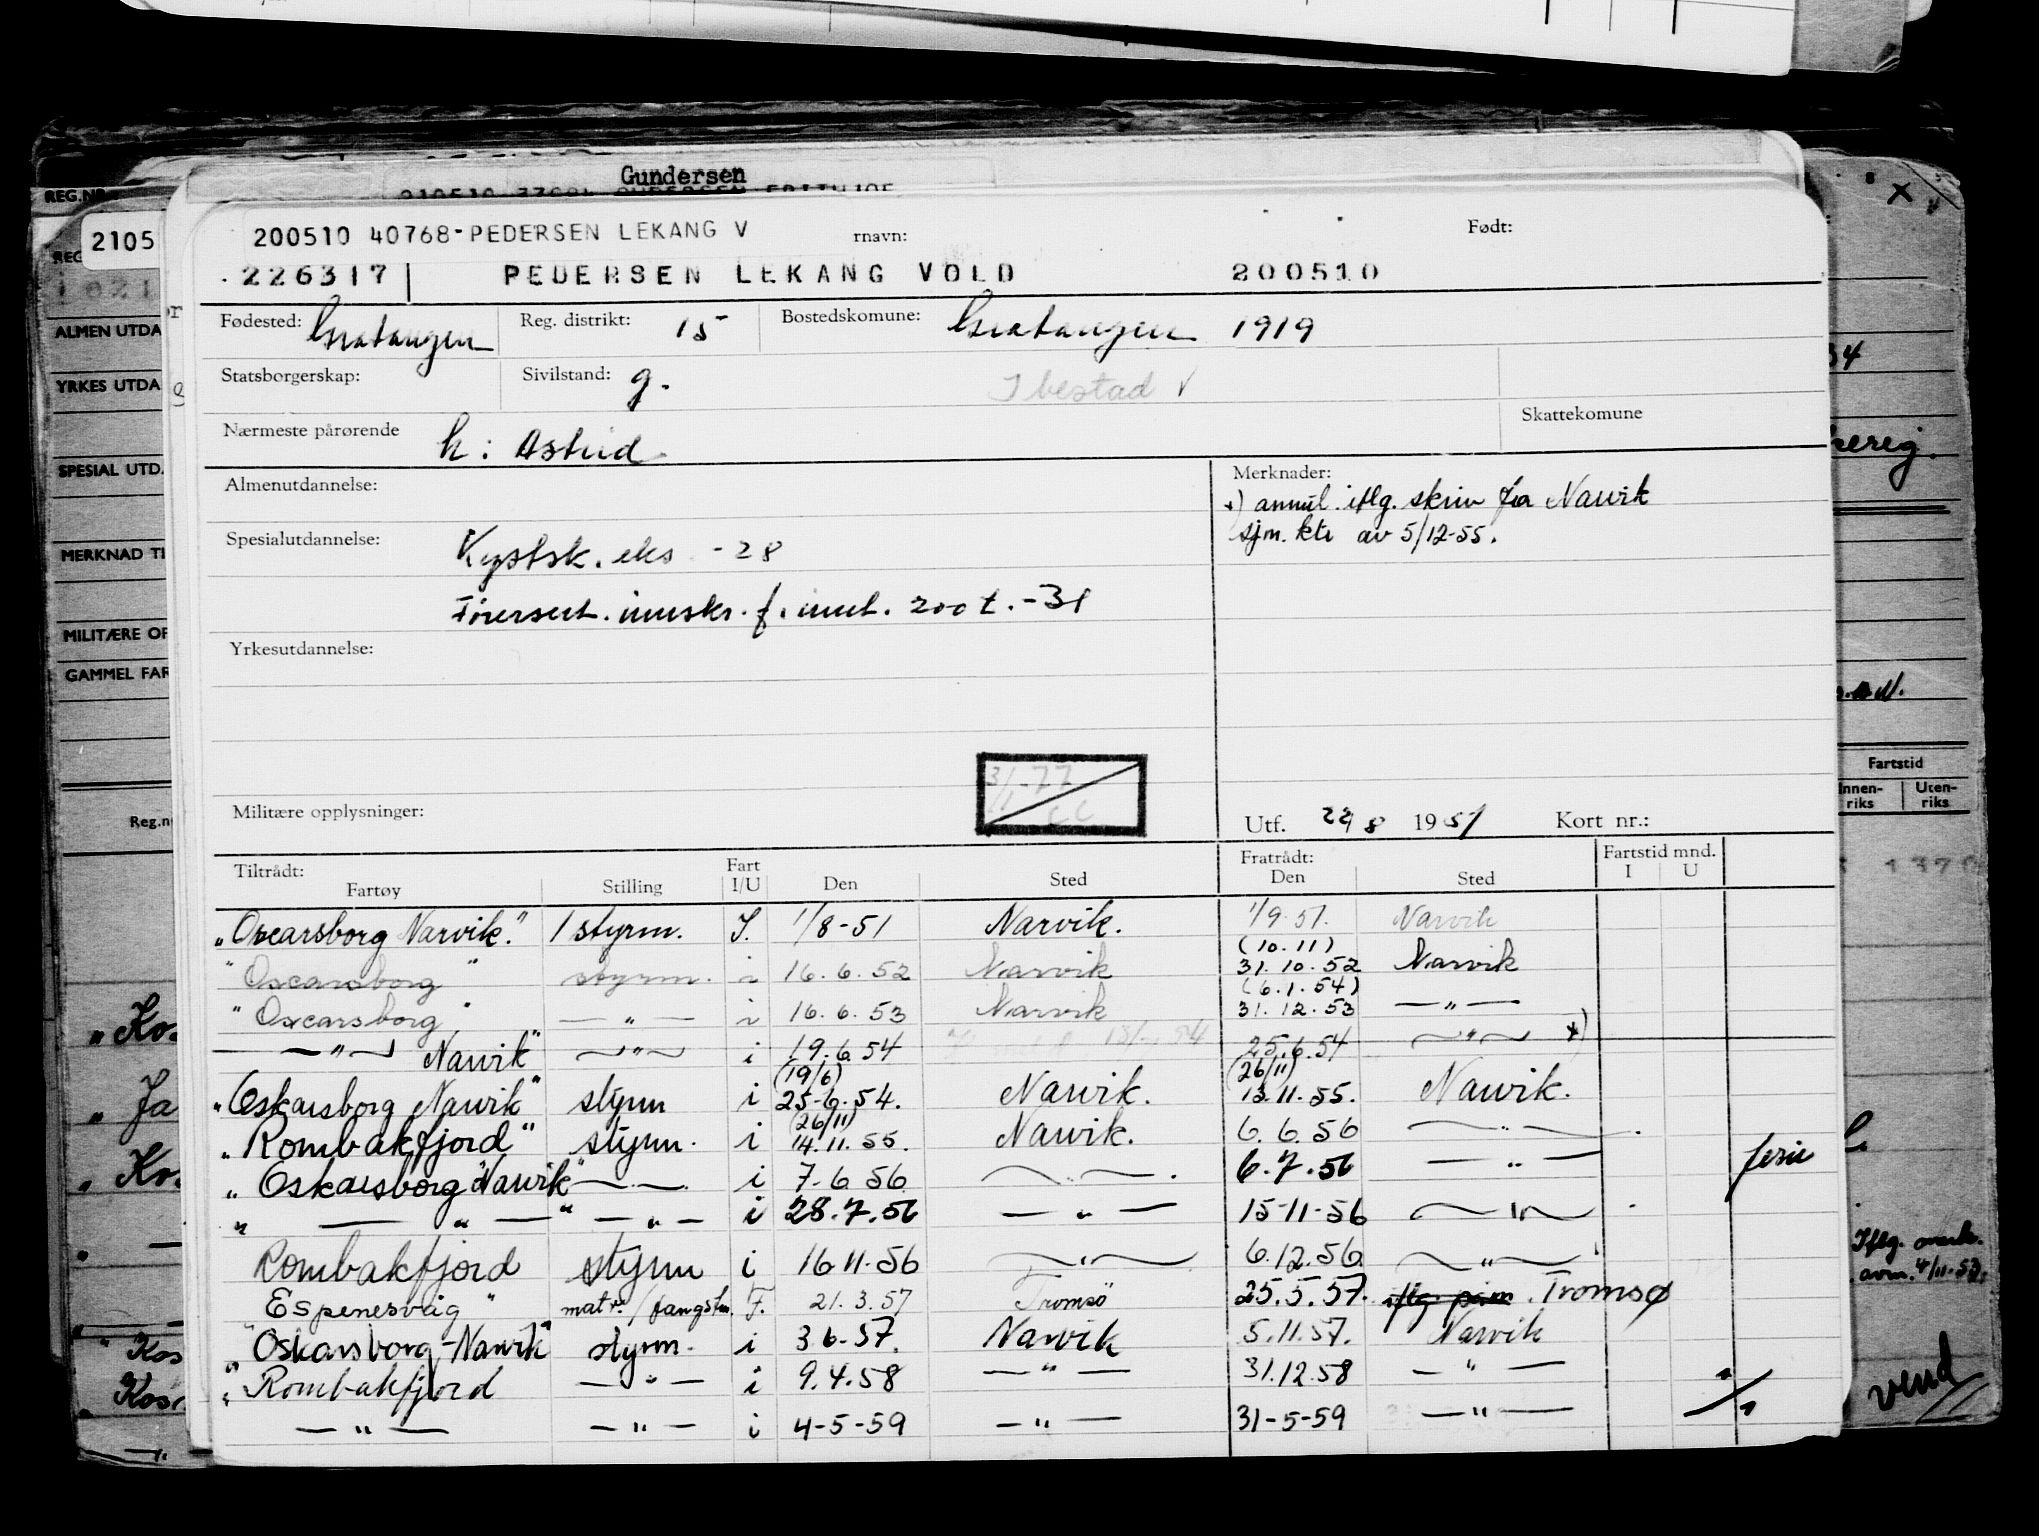 Gundersen
REG.NR
2105
200510 40768-PEDERSEN LEKANG V rnavn: Født:
226317 PEDERSEN LEKANG VOLD 200510
Fødested: Gratangen Reg. distrikt: 15 Bostedskomune: Gratangen 1919
Statsborgerskap: Sivilstand: g. Ibestad V
Skattekomune
Nærmeste pårørende h: Astrid
Almenutdannelse: Merknader:
*) annul. iflg. skriv fra Narvik
sjm. ktr av 5/12-55.
Spesialutdannelse: Kystsk. eks -28
Førersert. innskr. f. innt. 200 t. -31
Yrkesutdannelse:
3/1-77
Militære opplysninger: Utf. 22/8 1951 Kort nr.:
Tiltrådt: Fart Fratrådt: Fartstid mnd.
Fartøy Stilling I/U Den Sted Den Sted I U
"Oscarsborg Narvik." 1 styrm. I. 1/8-51 Narvik. 1/9.51. Narvik
"Oscarsborg" styrm. i 16.6.52 Narvik (10.11) 31.10.52 Narvik
"Oscarsborg" — " — i 16.6.53 Narvik (6.1.54) 31.12.53 — " —
— " — Narvik" — " — i 19.6.54 25.6.54 — " — *)
"Oskarsborg Narvik" styrm i (19/6) 25-6.54. Narvik. (26/11) 13.11.55. Narvik.
"Rombakfjord" styrm. i (26/11) 14.11.55. Narvik. 6.6.56 — " —
"Oskarsborg Narvik" — " — i 7-6 56 — " — 6.7.56 — " — ferie
" — " — " — " — i 28.7.56 — " — 15-11-56 — " —
Rombakfjord styrm i 16.11.56 — " — 6.12.56. — " —
"Espenesvåg" matr. / fangstm. F. 21.3.57 Tromsø 25.5.57. Tromsø
"Oskarsborg-Narvik" styrm. i 3.6.57. Narvik 5.11.57. Narvik
"Rombakfjord — " — i 9.4.58 — " — 31.12.58 — " —
— " — — " — i 4-5-59 — " — 31-5-59 — " —
ALMEN UTDA
YRKES UTDA
SPESIAL UTD.
MERKNAD TI
MILITÆRE OP
GAMMEL FAR
Reg.n
"Ko
"Ja
"Ko
"Kos
"Kos
34
Fartstid
Innen-riks Uten-riks
1370
Iflg.
vend